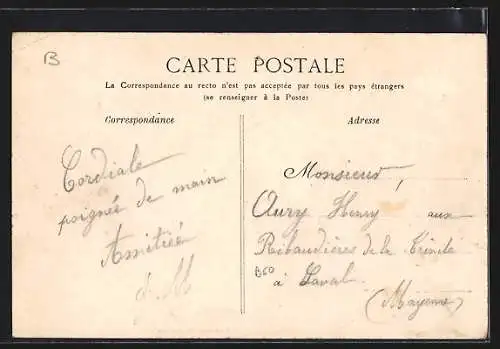 B
CARTE POSTALE
La Correspondance au recto n'est pas acceptée par tous les pays étrangers
(se renseigner à la Poste)
Correspondance
Adresse
Cordiale
poignée de main
Amitiée
d. M
Monsieur,
Aury Henry aux
Ribaudières de la Trinité
B50
à Laval
(Mayenne)